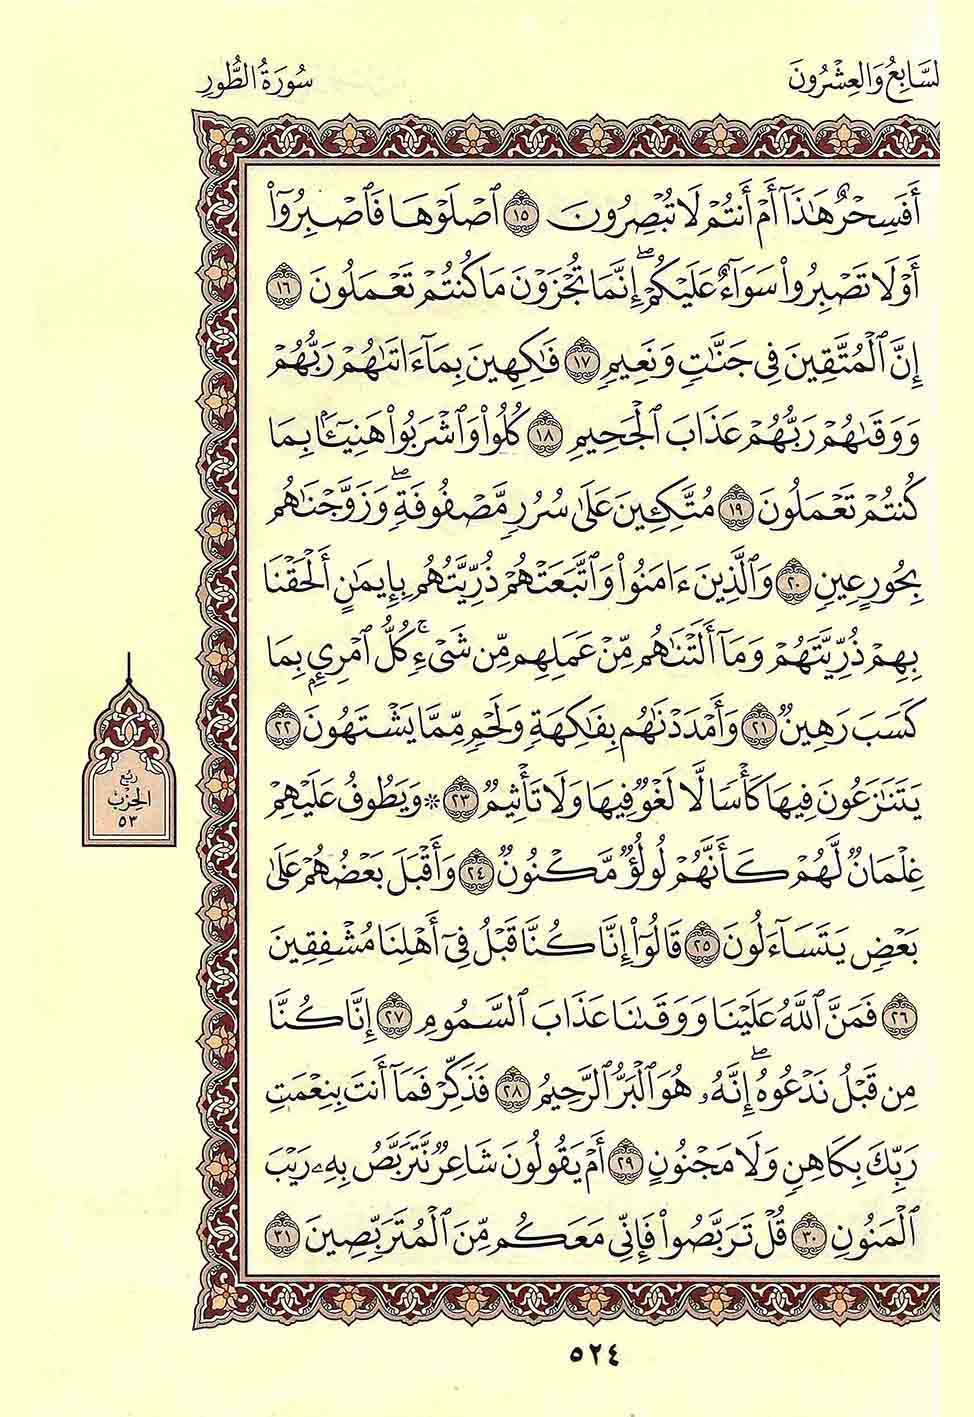 لسَّابِعُ وَالعِشْرُونَ
سُورَةُ الطُّورِ
أَفَسِحْرٌ هَٰذَآ أَمْ أَنتُمْ لَا تُبْصِرُونَ ١٥ ٱصْلَوْهَا فَٱصْبِرُوٓا۟
أَوْ لَا تَصْبِرُوا۟ سَوَآءٌ عَلَيْكُمْ ۖ إِنَّمَا تُجْزَوْنَ مَا كُنتُمْ تَعْمَلُونَ ١٦
إِنَّ ٱلْمُتَّقِينَ فِى جَنَّٰتٍ وَنَعِيمٍ ١٧ فَٰكِهِينَ بِمَآ ءَاتَىٰهُمْ رَبُّهُمْ
وَوَقَىٰهُمْ رَبُّهُمْ عَذَابَ ٱلْجَحِيمِ ١٨ كُلُوا۟ وَٱشْرَبُوا۟ هَنِيٓـًٔۢا بِمَا
كُنتُمْ تَعْمَلُونَ ١٩ مُتَّكِـِٔينَ عَلَىٰ سُرُرٍ مَّصْفُوفَةٍ ۖ وَزَوَّجْنَٰهُم
بِحُورٍ عِينٍ ٢٠ وَٱلَّذِينَ ءَامَنُوا۟ وَٱتَّبَعَتْهُمْ ذُرِّيَّتُهُم بِإِيمَٰنٍ أَلْحَقْنَا
بِهِمْ ذُرِّيَّتَهُمْ وَمَآ أَلَتْنَٰهُم مِّنْ عَمَلِهِم مِّن شَىْءٍ ۚ كُلُّ ٱمْرِئٍۭ بِمَا
كَسَبَ رَهِينٌ ٢١ وَأَمْدَدْنَٰهُم بِفَٰكِهَةٍ وَلَحْمٍ مِّمَّا يَشْتَهُونَ ٢٢
يَتَنَٰزَعُونَ فِيهَا كَأْسًا لَّا لَغْوٌ فِيهَا وَلَا تَأْثِيمٌ ٢٣ * وَيَطُوفُ عَلَيْهِمْ
غِلْمَانٌ لَّهُمْ كَأَنَّهُمْ لُؤْلُؤٌ مَّكْنُونٌ ٢٤ وَأَقْبَلَ بَعْضُهُمْ عَلَىٰ
بَعْضٍ يَتَسَآءَلُونَ ٢٥ قَالُوٓا۟ إِنَّا كُنَّا قَبْلُ فِىٓ أَهْلِنَا مُشْفِقِينَ
٢٦ فَمَنَّ ٱللَّهُ عَلَيْنَا وَوَقَىٰنَا عَذَابَ ٱلسَّمُومِ ٢٧ إِنَّا كُنَّا
مِن قَبْلُ نَدْعُوهُ ۖ إِنَّهُۥ هُوَ ٱلْبَرُّ ٱلرَّحِيمُ ٢٨ فَذَكِّرْ فَمَآ أَنتَ بِنِعْمَتِ
رَبِّكَ بِكَاهِنٍ وَلَا مَجْنُونٍ ٢٩ أَمْ يَقُولُونَ شَاعِرٌ نَّتَرَبَّصُ بِهِۦ رَيْبَ
ٱلْمَنُونِ ٣٠ قُلْ تَرَبَّصُوا۟ فَإِنِّى مَعَكُم مِّنَ ٱلْمُتَرَبِّصِينَ ٣١
رُبْع
الحِزْب
٥٣
٥٢٤